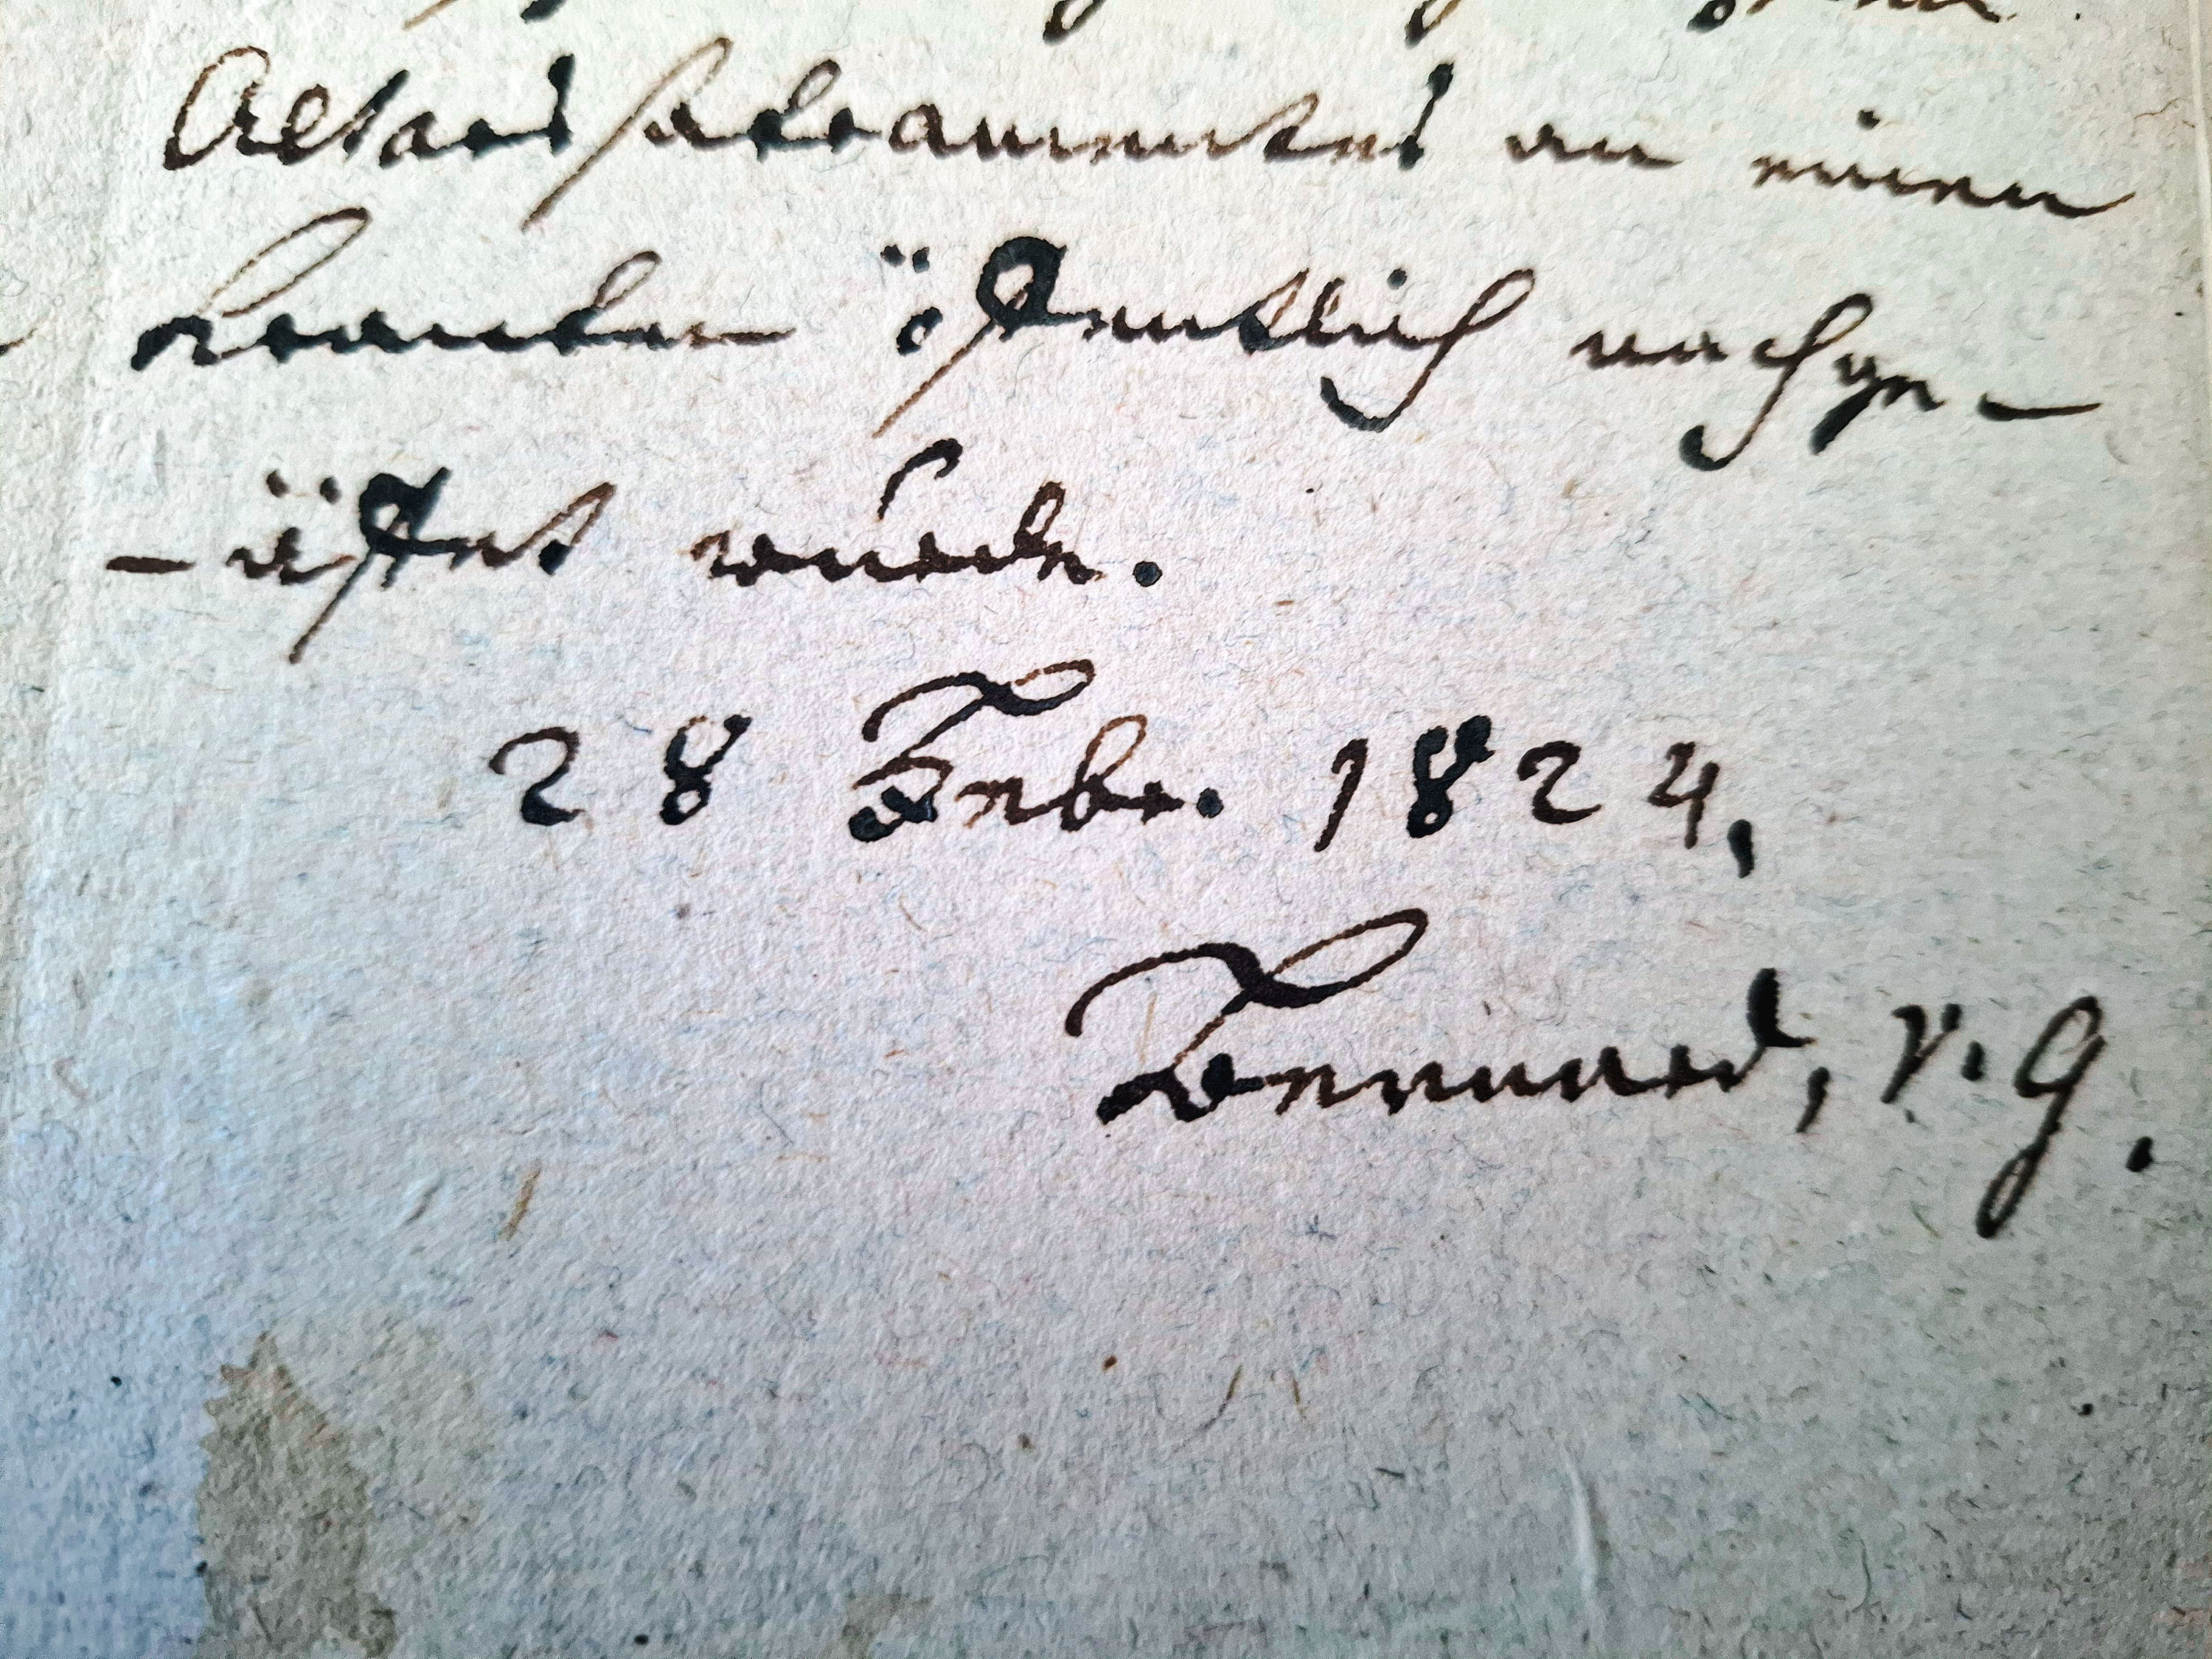 Altarssakramentes an einen
Kranken öffentlich nachge-
-äffet wurde.
28 Febr. 1824,
V. G.